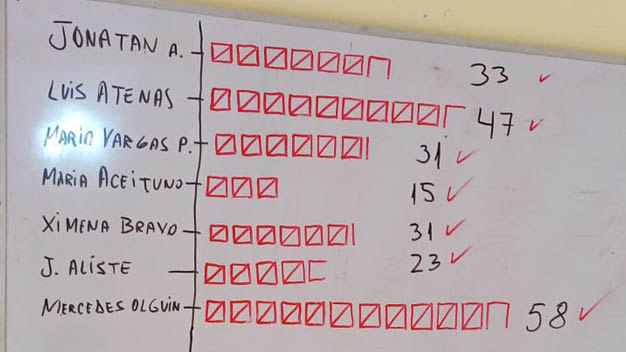 JONATAN A. 33
LUIS ATENAS 47
MARIA VARGAS P. 31
MARIA ACEITUNO 15
XIMENA BRAVO 31
J. ALISTE 23
MERCEDES OLGUIN 58